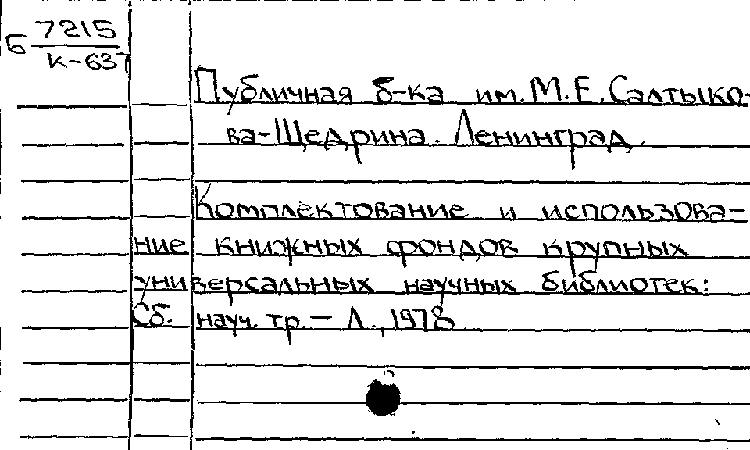 Б 7215
К-637
Публичная б-ка им. М.Е. Салтыко-
ва-Щедрина. Ленинград.
Комплектование и использова-
ние книжных фондов крупных
универсальных научных библиотек:
Сб. науч. тр. – Л., 1978